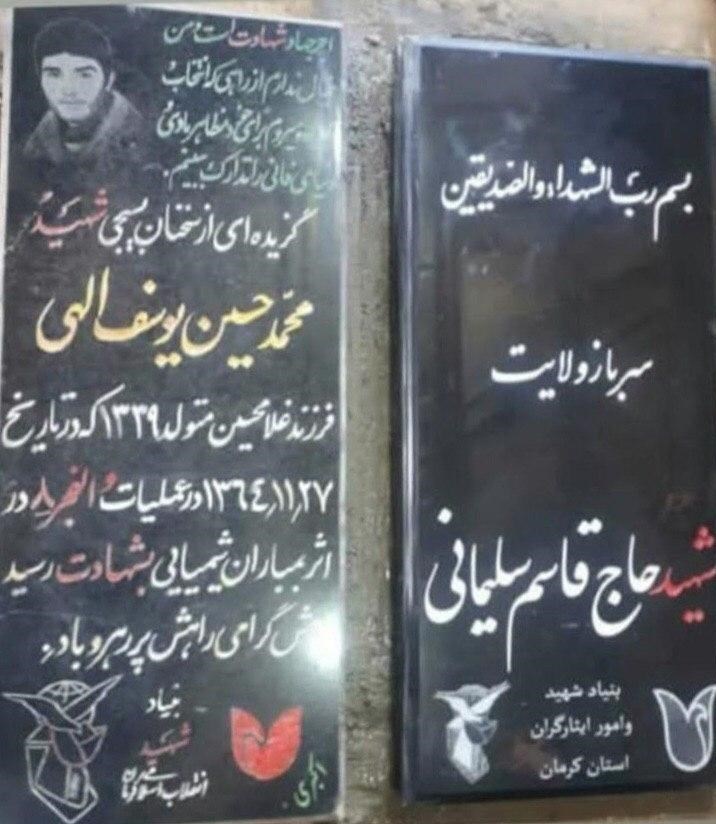 اجر جهاد شهادت است و من
ندارم از راهی که انتخاب
برای خود مظاهر مادی
فانی را تدارک ببینم.
گزیده ای از سخنان بسیجی شهید
محمد حسین یوسف الهی
فرزند غلامحسین متولد ۱۳۳۹ که در تاریخ
۱۳۶۴,۱۱,۲۷ در عملیات والفجر ۸ در
اثر بمباران شیمیایی بشهادت رسید
گرامی راهش پر رهرو باد.
بنیاد
شهید
انقلاب اسلامی کرمان
بسم رب الشهداء والصدیقین
سرباز ولایت
شهید حاج قاسم سلیمانی
بنیاد شهید
وامور ایثارگران
استان کرمان